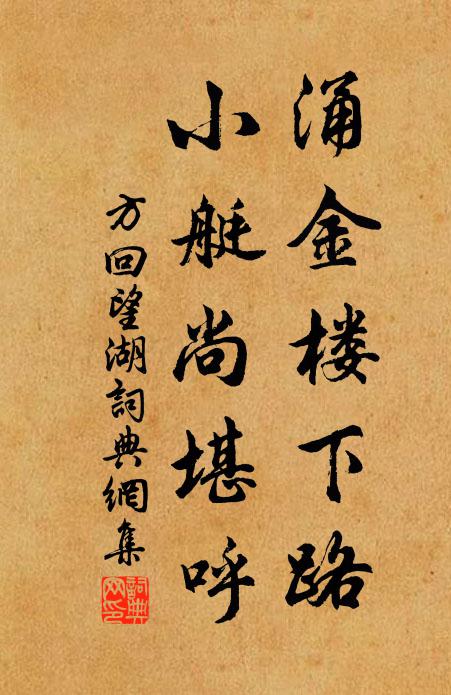 涌金楼下路
小艇尚堪呼
方回望湖詞典網集
詞典网印